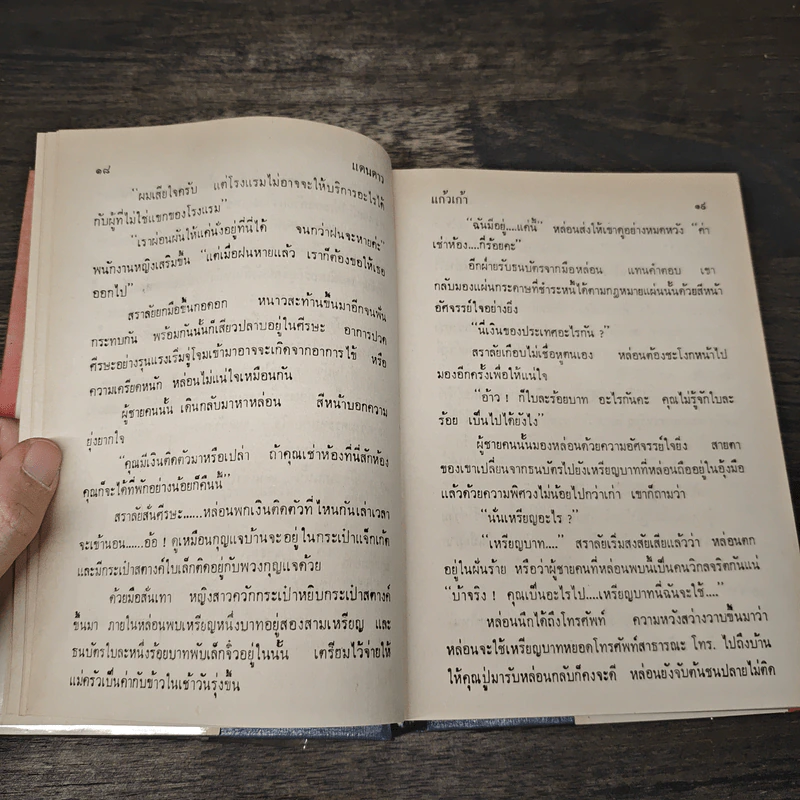 ๑๘ แดนดาว
"ผมเสียใจครับ แต่โรงแรมไม่อาจจะให้บริการอะไรได้
กับผู้ที่ไม่ใช่แขกของโรงแรม"
"เราผ่อนผันให้แค่นั่งอยู่ที่นี่ได้ จนกว่าฝนจะหายค่ะ"
พนักงานหญิงเสริมขึ้น "แต่เมื่อฝนหายแล้ว เราก็ต้องขอให้เธอ
ออกไป"
สราลัยยกมือขึ้นกอดอก หนาวสะท้านขึ้นมาอีกจนฟัน
กระทบกัน พร้อมกันนั้นก็เสียวปลาบอยู่ในศีรษะ อาการปวด
ศีรษะอย่างรุนแรงเริ่มจู่โจมเข้ามาอาจจะเกิดจากอาการไข้ หรือ
ความเครียดหนัก หล่อนไม่แน่ใจเหมือนกัน
ผู้ชายคนนั้น เดินกลับมาหาหล่อน สีหน้าบอกความ
ยุ่งยากใจ
"คุณมีเงินติดตัวมาหรือเปล่า ถ้าคุณเช่าห้องที่นี่สักห้อง
คุณก็จะได้ที่พักอย่างน้อยก็คืนนี้"
สราลัยสั่นศีรษะ......หล่อนพกเงินติดตัวที่ไหนกันเล่าเวลา
จะเข้านอน......อ้อ ! ดูเหมือนกุญแจบ้านจะอยู่ในกระเป๋าแจ็กเก็ต
และมีกระเป๋าสตางค์ใบเล็กติดอยู่กับพวงกุญแจด้วย
ด้วยมือสั่นเทา หญิงสาวควักกระเป๋าหยิบกระเป๋าสตางค์
ขึ้นมา ภายในหล่อนพบเหรียญหนึ่งบาทอยู่สองสามเหรียญ และ
ธนบัตรใบละหนึ่งร้อยบาทพับเล็กจิ๋วอยู่ในนั้น เตรียมไว้จ่ายให้
แม่ครัวเป็นค่ากับข้าวในเช้าวันรุ่งขึ้น
แก้วเก้า ๑๙
"ฉันมีอยู่....แค่นี้" หล่อนส่งให้เขาดูอย่างหมดหวัง "ค่า
เช่าห้อง....กี่ร้อยคะ"
อีกฝ่ายรับธนบัตรจากมือหล่อน แทนคำตอบ เขา
กลับมองแผ่นกระดาษที่ชำระหนี้ได้ตามกฎหมายแผ่นนั้นด้วยสีหน้า
อัศจรรย์ใจอย่างยิ่ง
"นี่เงินของประเทศอะไรกัน ?"
สราลัยเกือบไม่เชื่อหูตนเอง หล่อนต้องชะโงกหน้าไป
มองอีกครั้งเพื่อให้แน่ใจ
"อ้าว ! ก็ใบละร้อยบาท อะไรกันคะ คุณไม่รู้จักใบละ
ร้อย เป็นไปได้ยังไง"
ผู้ชายคนนั้นมองหล่อนด้วยความอัศจรรย์ใจยิ่ง สายตา
ของเขาเปลี่ยนจากธนบัตรไปยังเหรียญบาทที่หล่อนถืออยู่ในอุ้งมือ
แล้วด้วยความพิศวงไม่น้อยไปกว่าเก่า เขาก็ถามว่า
"นั่นเหรียญอะไร ?"
"เหรียญบาท...." สราลัยเริ่มสงสัยเสียแล้วว่า หล่อนตก
อยู่ในฝันร้าย หรือว่าผู้ชายคนที่หล่อนพบนี้เป็นคนวิกลจริตกันแน่
"บ้าจริง ! คุณเป็นอะไรไป....เหรียญบาทนี่ฉันจะใช้...."
หล่อนนึกได้ถึงโทรศัพท์ ความหวังสว่างวาบขึ้นมาว่า
หล่อนจะใช้เหรียญบาทหยอดโทรศัพท์สาธารณะ โทร. ไปถึงบ้าน
ให้คุณปู่มารับหล่อนกลับก็คงจะดี หล่อนยังจับต้นชนปลายไม่ติด